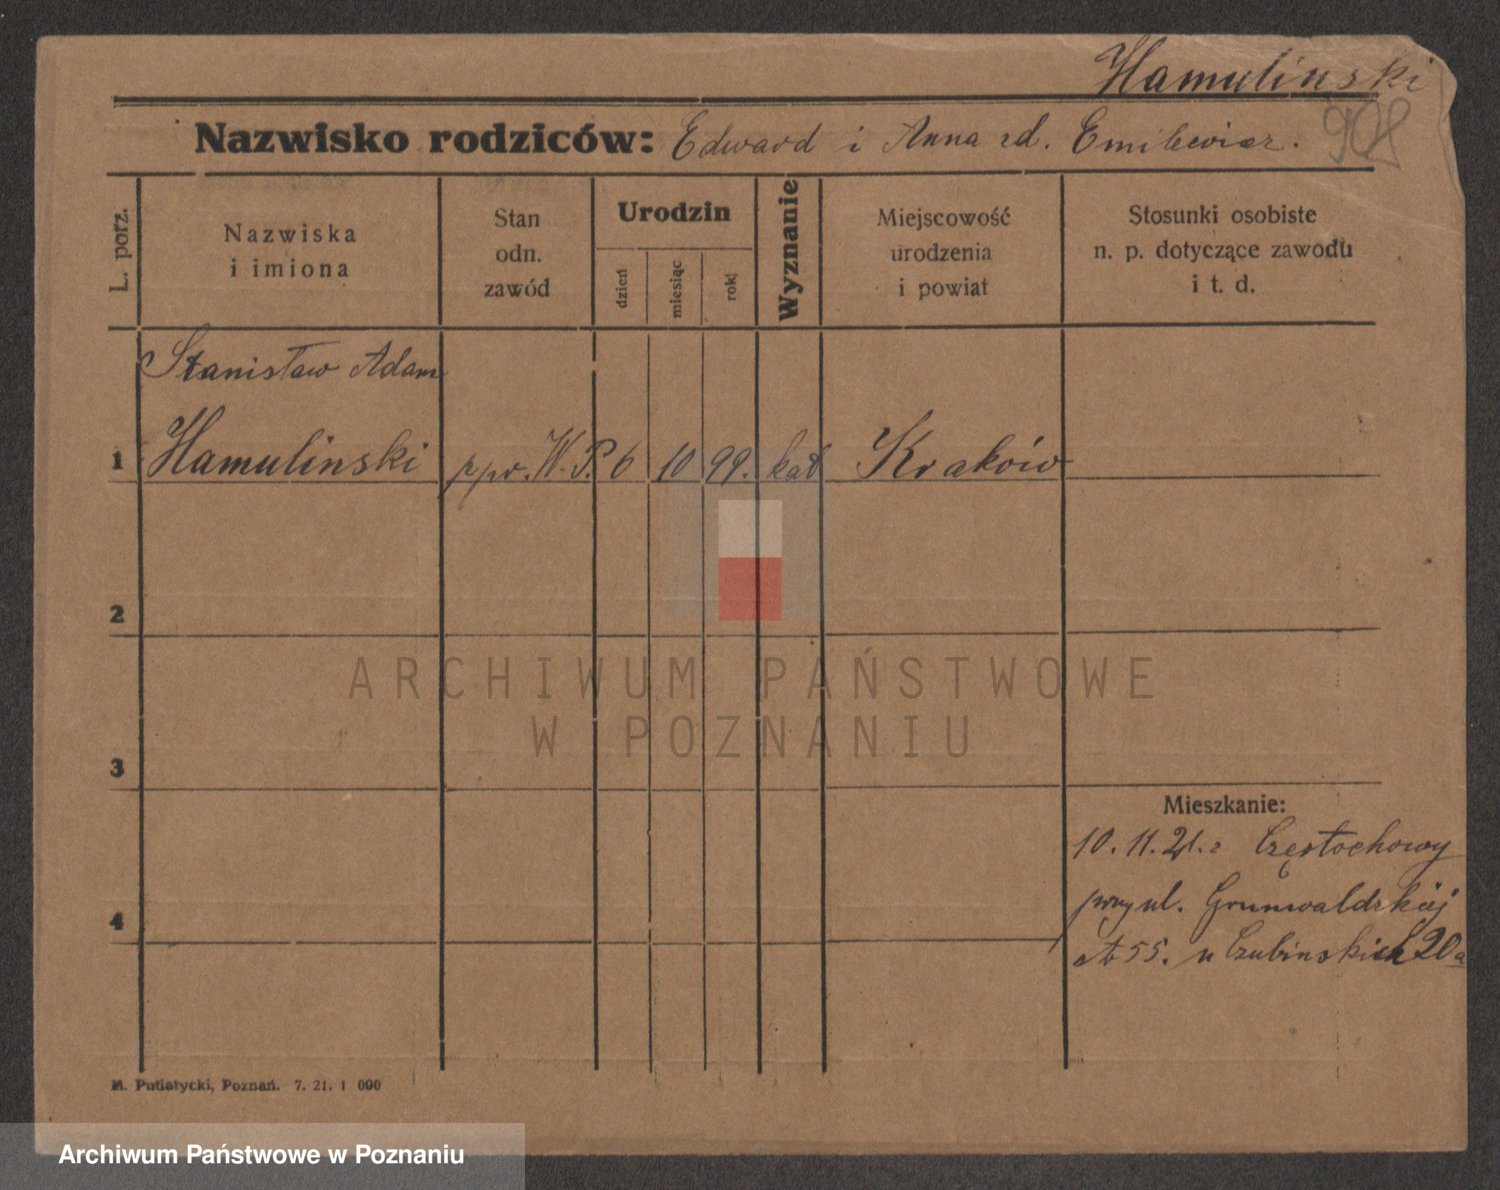 Hamulinski
Nazwisko rodziców: Edward i Anna rd. Emilewicz.
908
L. porz.
Nazwiska
i imiona
Stan
odn.
zawód
Urodzin
dzień
miesiąc
rok
Wyznanie
Miejscowość
urodzenia
i powiat
Stosunki osobiste
n. p. dotyczące zawodu
i t. d.
Stanisław Adam
1 Hamulinski ppor. W. P. 6 10 99. kat Kraków
2
3
4
Mieszkanie:
10. 11. 21. z Częstochowy
przy ul. Grunwaldzkiej
55. u Czubinskich 20a
M. Putiatycki, Poznań. 7. 21. 1 000
ARCHIWUM PAŃSTWOWE
W POZNANIU
Archiwum Państwowe w Poznaniu